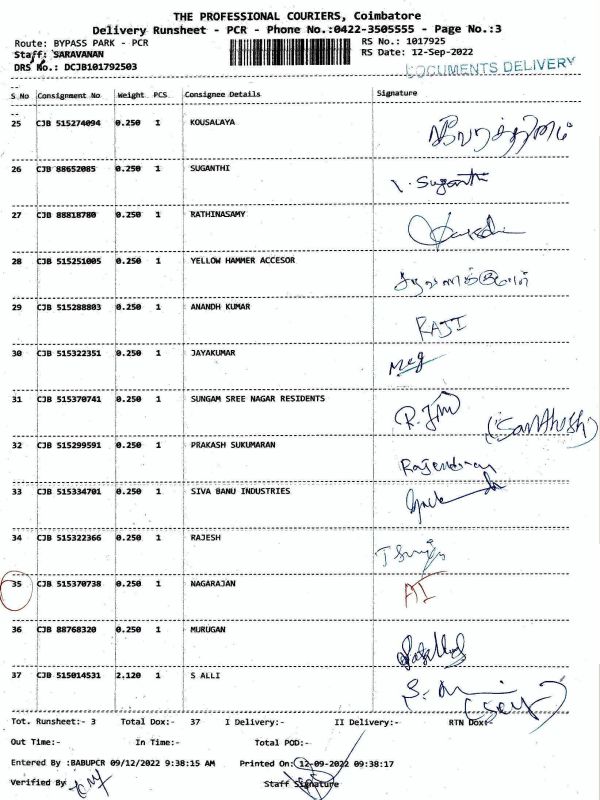 THE PROFESSIONAL COURIERS, Coimbatore
Delivery Runsheet - PCR - Phone No.:0422-3505555 - Page No.:3
Route: BYPASS PARK - PCR
RS No.: 1017925
Staff: SARAVANAN
RS Date: 12-Sep-2022
DRS No.: DCJB101792503
DOCUMENTS DELIVERY
S No Consignment No Weight PCS Consignee Details Signature
25 CJB 515274094 0.250 1 KOUSALAYA
26 CJB 88652085 0.250 1 SUGANTHI Suganthi
27 CJB 88818780 0.250 1 RATHINASAMY
28 CJB 515251005 0.250 1 YELLOW HAMMER ACCESOR
29 CJB 515288803 0.250 1 ANANDH KUMAR RAJI
30 CJB 515322351 0.250 1 JAYAKUMAR
31 CJB 515370741 0.250 1 SUNGAM SREE NAGAR RESIDENTS (Santhosh)
32 CJB 515299591 0.250 1 PRAKASH SUKUMARAN Rajendran
33 CJB 515334701 0.250 1 SIVA BANU INDUSTRIES
34 CJB 515322366 0.250 1 RAJESH
35 CJB 515370738 0.250 1 NAGARAJAN AI
36 CJB 88768320 0.250 1 MURUGAN
37 CJB 515014531 2.120 1 S ALLI
Tot. Runsheet:- 3 Total Dox:- 37 I Delivery:- II Delivery:- RTN Dox:-
Out Time:- In Time:- Total POD:-
Entered By :BABUPCR 09/12/2022 9:38:15 AM Printed On: 12-09-2022 09:38:17
Verified By Staff Signature